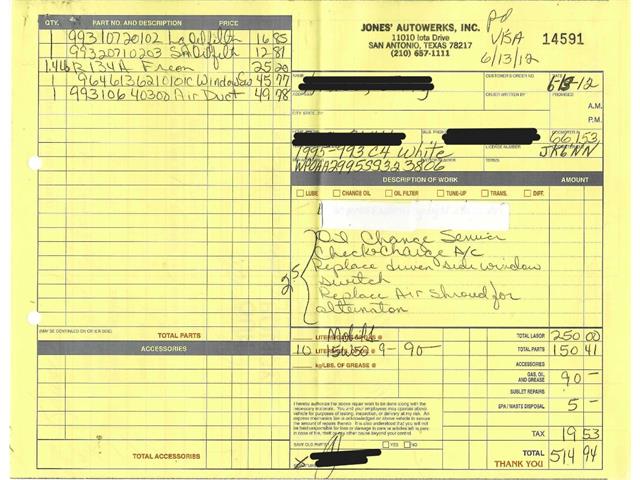 QTY. PART NO. AND DESCRIPTION PRICE
1 99310720102 Lg Oil filter 16 85
1 99320710203 Sm Oil filter 12 81
1.44 lb R134A Freon 25 20
1 9646136210101C Window Sw 45 77
1 99310640308 Air Duct 49 78
(MAY BE CONTINUED ON OTHER SIDE)
TOTAL PARTS
ACCESSORIES
TOTAL ACCESSORIES
JONES' AUTOWERKS, INC.
11010 Iota Drive
SAN ANTONIO, TEXAS 78217
(210) 657-1111
pd
VISA
6/13/12
14591
NAME CUSTOMER'S ORDER NO. DATE
12
ADDRESS ORDER WRITTEN BY PROMISED
A.M.
CITY, STATE, ZIP
P.M.
BUS. PHONE
66153
LICENSE NUMBER
1995-993 C4 White JK6NN
MOTOR NUMBER TERMS
WPOAA2995SS323806
DESCRIPTION OF WORK AMOUNT
LUBE CHANGE OIL OIL FILTER TUNE-UP TRANS. DIFF.
Oil Change Service
Check & Charge A/c
2.5
Replace driver side window
switch
Replace Air Shroud for
alternator
Mobil 1
10 15W50 9- 90-
kg/LBS. OF GREASE @
TOTAL LABOR 250 00
TOTAL PARTS 150 41
ACCESSORIES
GAS, OIL AND GREASE 90 -
SUBLET REPAIRS
EPA / WASTE DISPOSAL 5 -
I hereby authorize the above repair work to be done along with the
necessary materials. You and your employees may operate above
vehicle for purposes of testing, inspection, or delivery at my risk. An
express mechanics lien is acknowledged on above vehicle to secure
the amount of repairs thereto. It is also understood that you will not
be held responsible for loss or damage to vehicle or articles left in
case of fire, theft or any other cause beyond your control.
SAVE OLD PARTS YES NO
TAX 19 53
X
TOTAL 514 94
THANK YOU